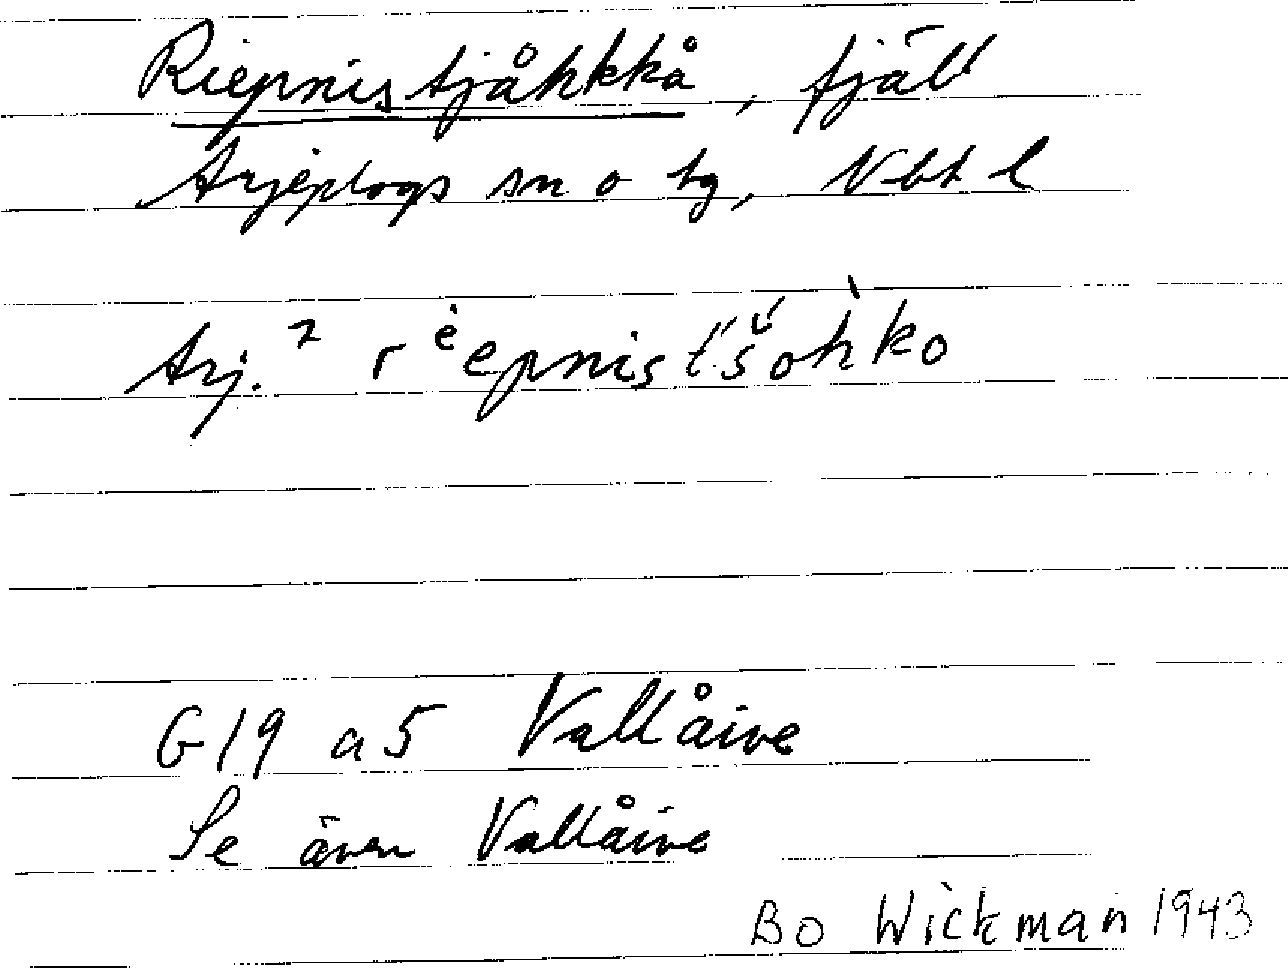 Riepnistjåhkkå, fjäll
Arjeplogs sn o tg, Vbt l
Arj.² rėepnist́š́ohˋko
G19 a5 Vallåive
Se även Vallåive
Bo Wickman 1943